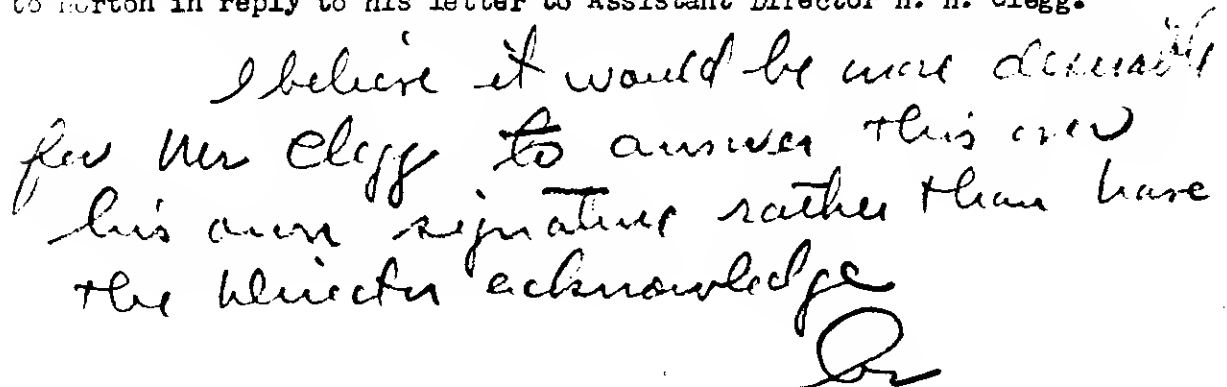 to Morton in reply to his letter to Assistant Director H. H. Clegg.
I believe it would be more desirable
for Mr Clegg to answer this over
his own signature rather than have
the Director acknowledge